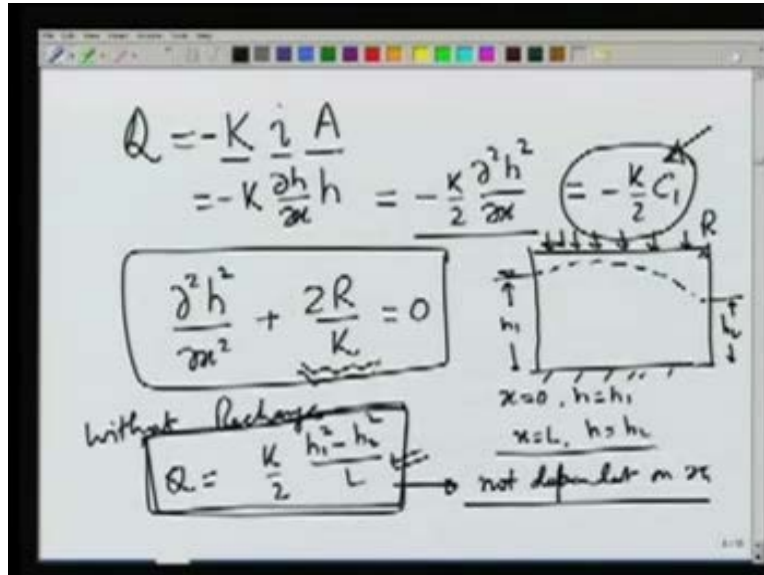 Q = -K i A
= -K ∂h/∂x h = -K/2 ∂²h²/∂x = -K/2 C₁
R
∂²h²/∂x² + 2R/K = 0
h₁
h₂
x=0, h=h₁
x=L, h=h₂
Without Recharge
Q = K/2 (h₁² - h₂²)/L
not dependent on x